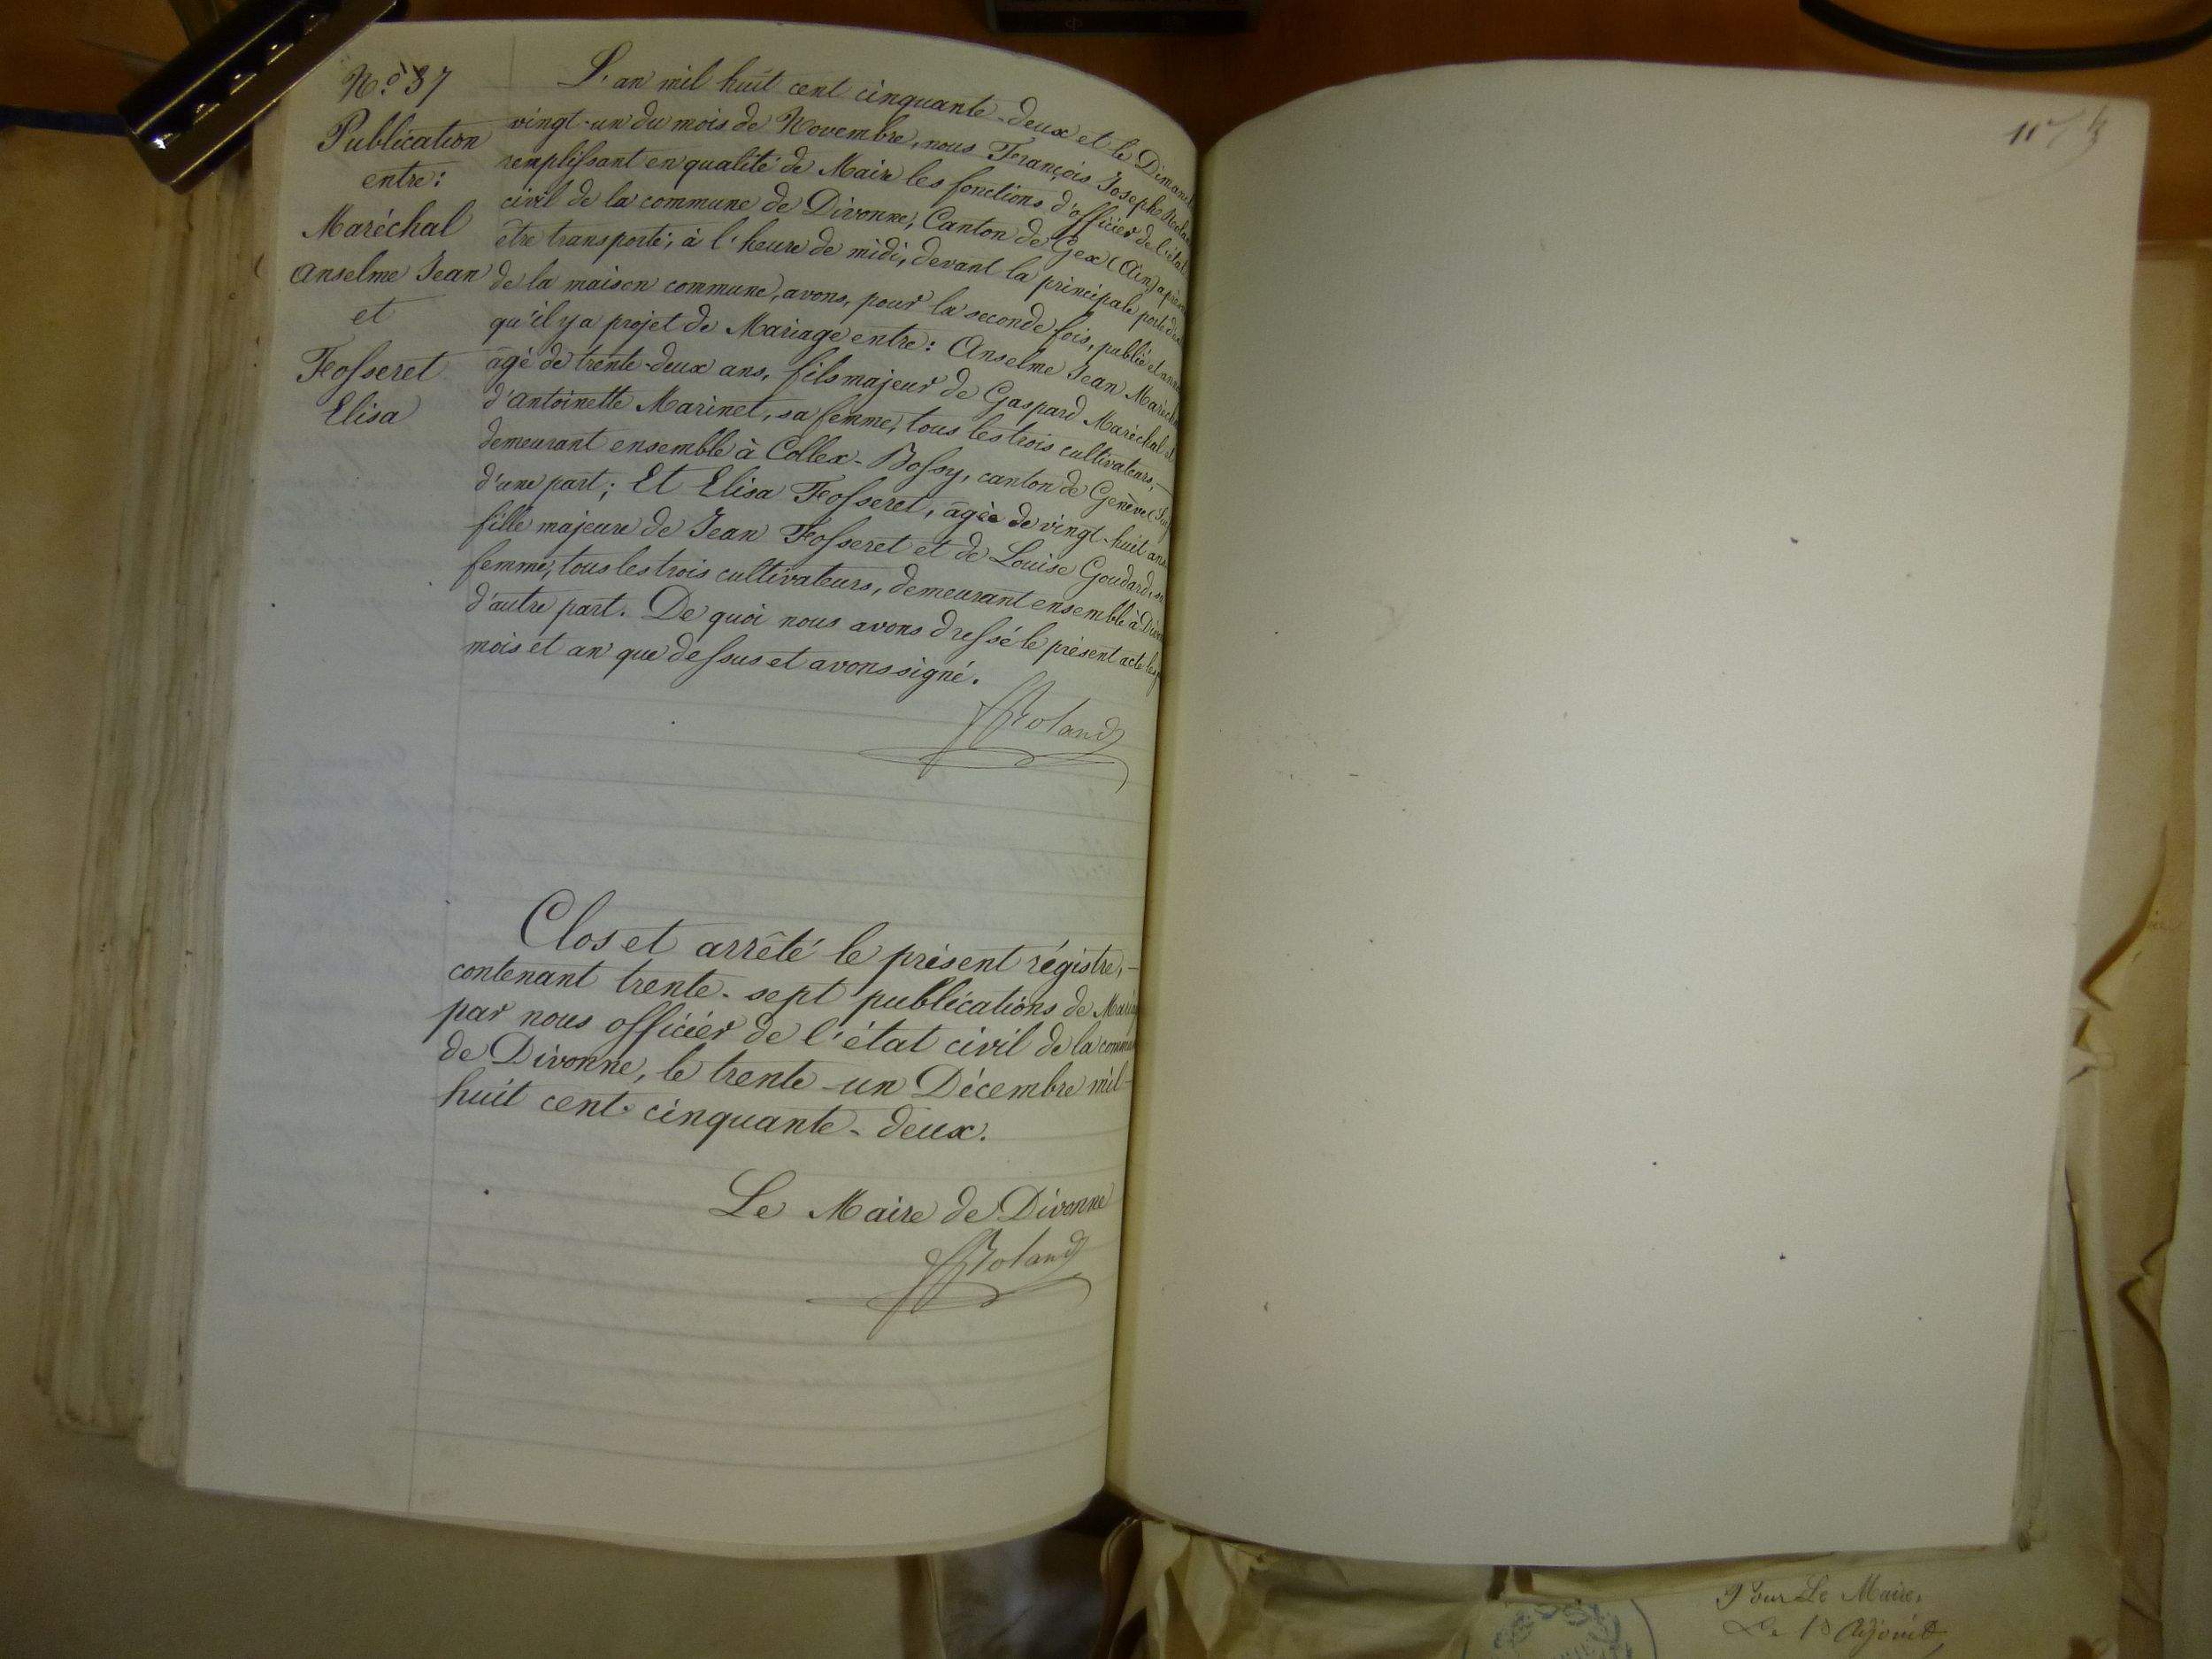 N.º 37
Publication
entre:
Maréchal
Anselme Jean
et
Fosseret
Elisa
L'an mil huit cent cinquante-deux et le Dimanch
vingt-un du mois de Novembre, nous François Joseph Roland
remplissant en qualité de Maire les fonctions d'officier de l'état
civil de la commune de Divonne, Canton de Gex (Ain) après
être transporté, à l'heure de midi, devant la principale porte d'en
de la maison commune, avons, pour la seconde fois, publié et anno
qu'il y a projet de Mariage entre: Anselme Jean Maréchal
âgé de trente-deux ans, fils majeur de Gaspard Maréchal et
d'Antoinette Marinet, sa femme, tous les trois cultivateurs,
demeurant ensemble à Collex-Bossy, canton de Genève
d'une part; Et Elisa Fosseret, âgée de vingt-huit ans
fille majeure de Jean Fosseret et de Louise Goudard, sa
femme, tous les trois cultivateurs, demeurant ensemble à Divon
d'autre part. De quoi nous avons dressé le présent acte
mois et an que dessus et avons signé.
Roland
Clos et arrêté le présent régistre,
contenant trente-sept publications de Maria
par nous officier de l'état civil de la commun
de Divonne, le trente-un Décembre mil
huit cent cinquante-deux.
Le Maire de Divonne
Roland
Pour Le Maire,
Adjoint